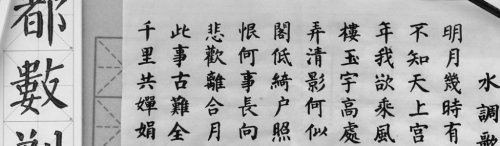 水調歌
明月幾時有
不知天上宮
年我欲乘風
樓玉宇高處
弄清影何似
閣低綺户照
恨何事長向
悲歡離合月
此事古難全
千里共嬋娟
都數